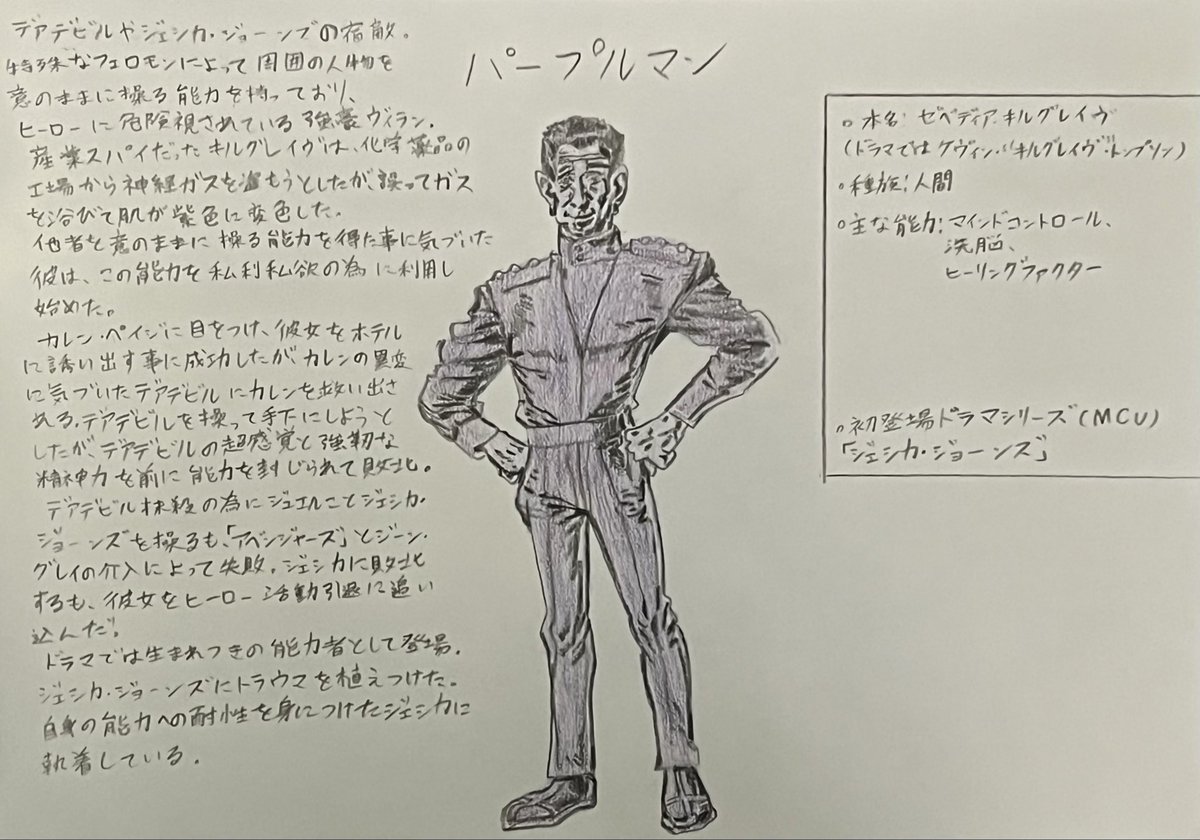 パープルマン
デアデビルやジェシカ・ジョーンズの宿敵。
特殊なフェロモンによって周囲の人物を
意のままに操る能力を持っており、
ヒーローに危険視されている強豪ヴィラン。
産業スパイだったキルグレイヴは、化学薬品の
工場から神経ガスを盗もうとしたが、誤ってガス
を浴びて肌が紫色に変色した。
他者を意のままに操る能力を得た事に気づいた
彼は、この能力を私利私欲の為に利用し
始めた。
カレン・ペイジに目をつけ、彼女をホテル
に誘い出す事に成功したがカレンの異変
に気づいたデアデビルにカレンを救い出さ
れる。デアデビルを操って手下にしようと
したが、デアデビルの超感覚と強靭な
精神力を前に能力を封じられて敗北。
デアデビル抹殺の為にジュエルことジェシカ・
ジョーンズを操るも、「アベンジャーズ」とジーン・
グレイの介入によって失敗。ジェシカに敗北
するも、彼女をヒーロー活動引退に追い
込んだ。
ドラマでは生まれつきの能力者として登場。
ジェシカ・ジョーンズにトラウマを植えつけた。
自身の能力への耐性を身につけたジェシカに
執着している。
○本名:ゼベディア・キルグレイヴ
(ドラマではケヴィン・"キルグレイヴ"・トンプソン)
○種族:人間
○主な能力:マインドコントロール、
洗脳、
ヒーリングファクター
○初登場ドラマシリーズ(MCU)
「ジェシカ・ジョーンズ」